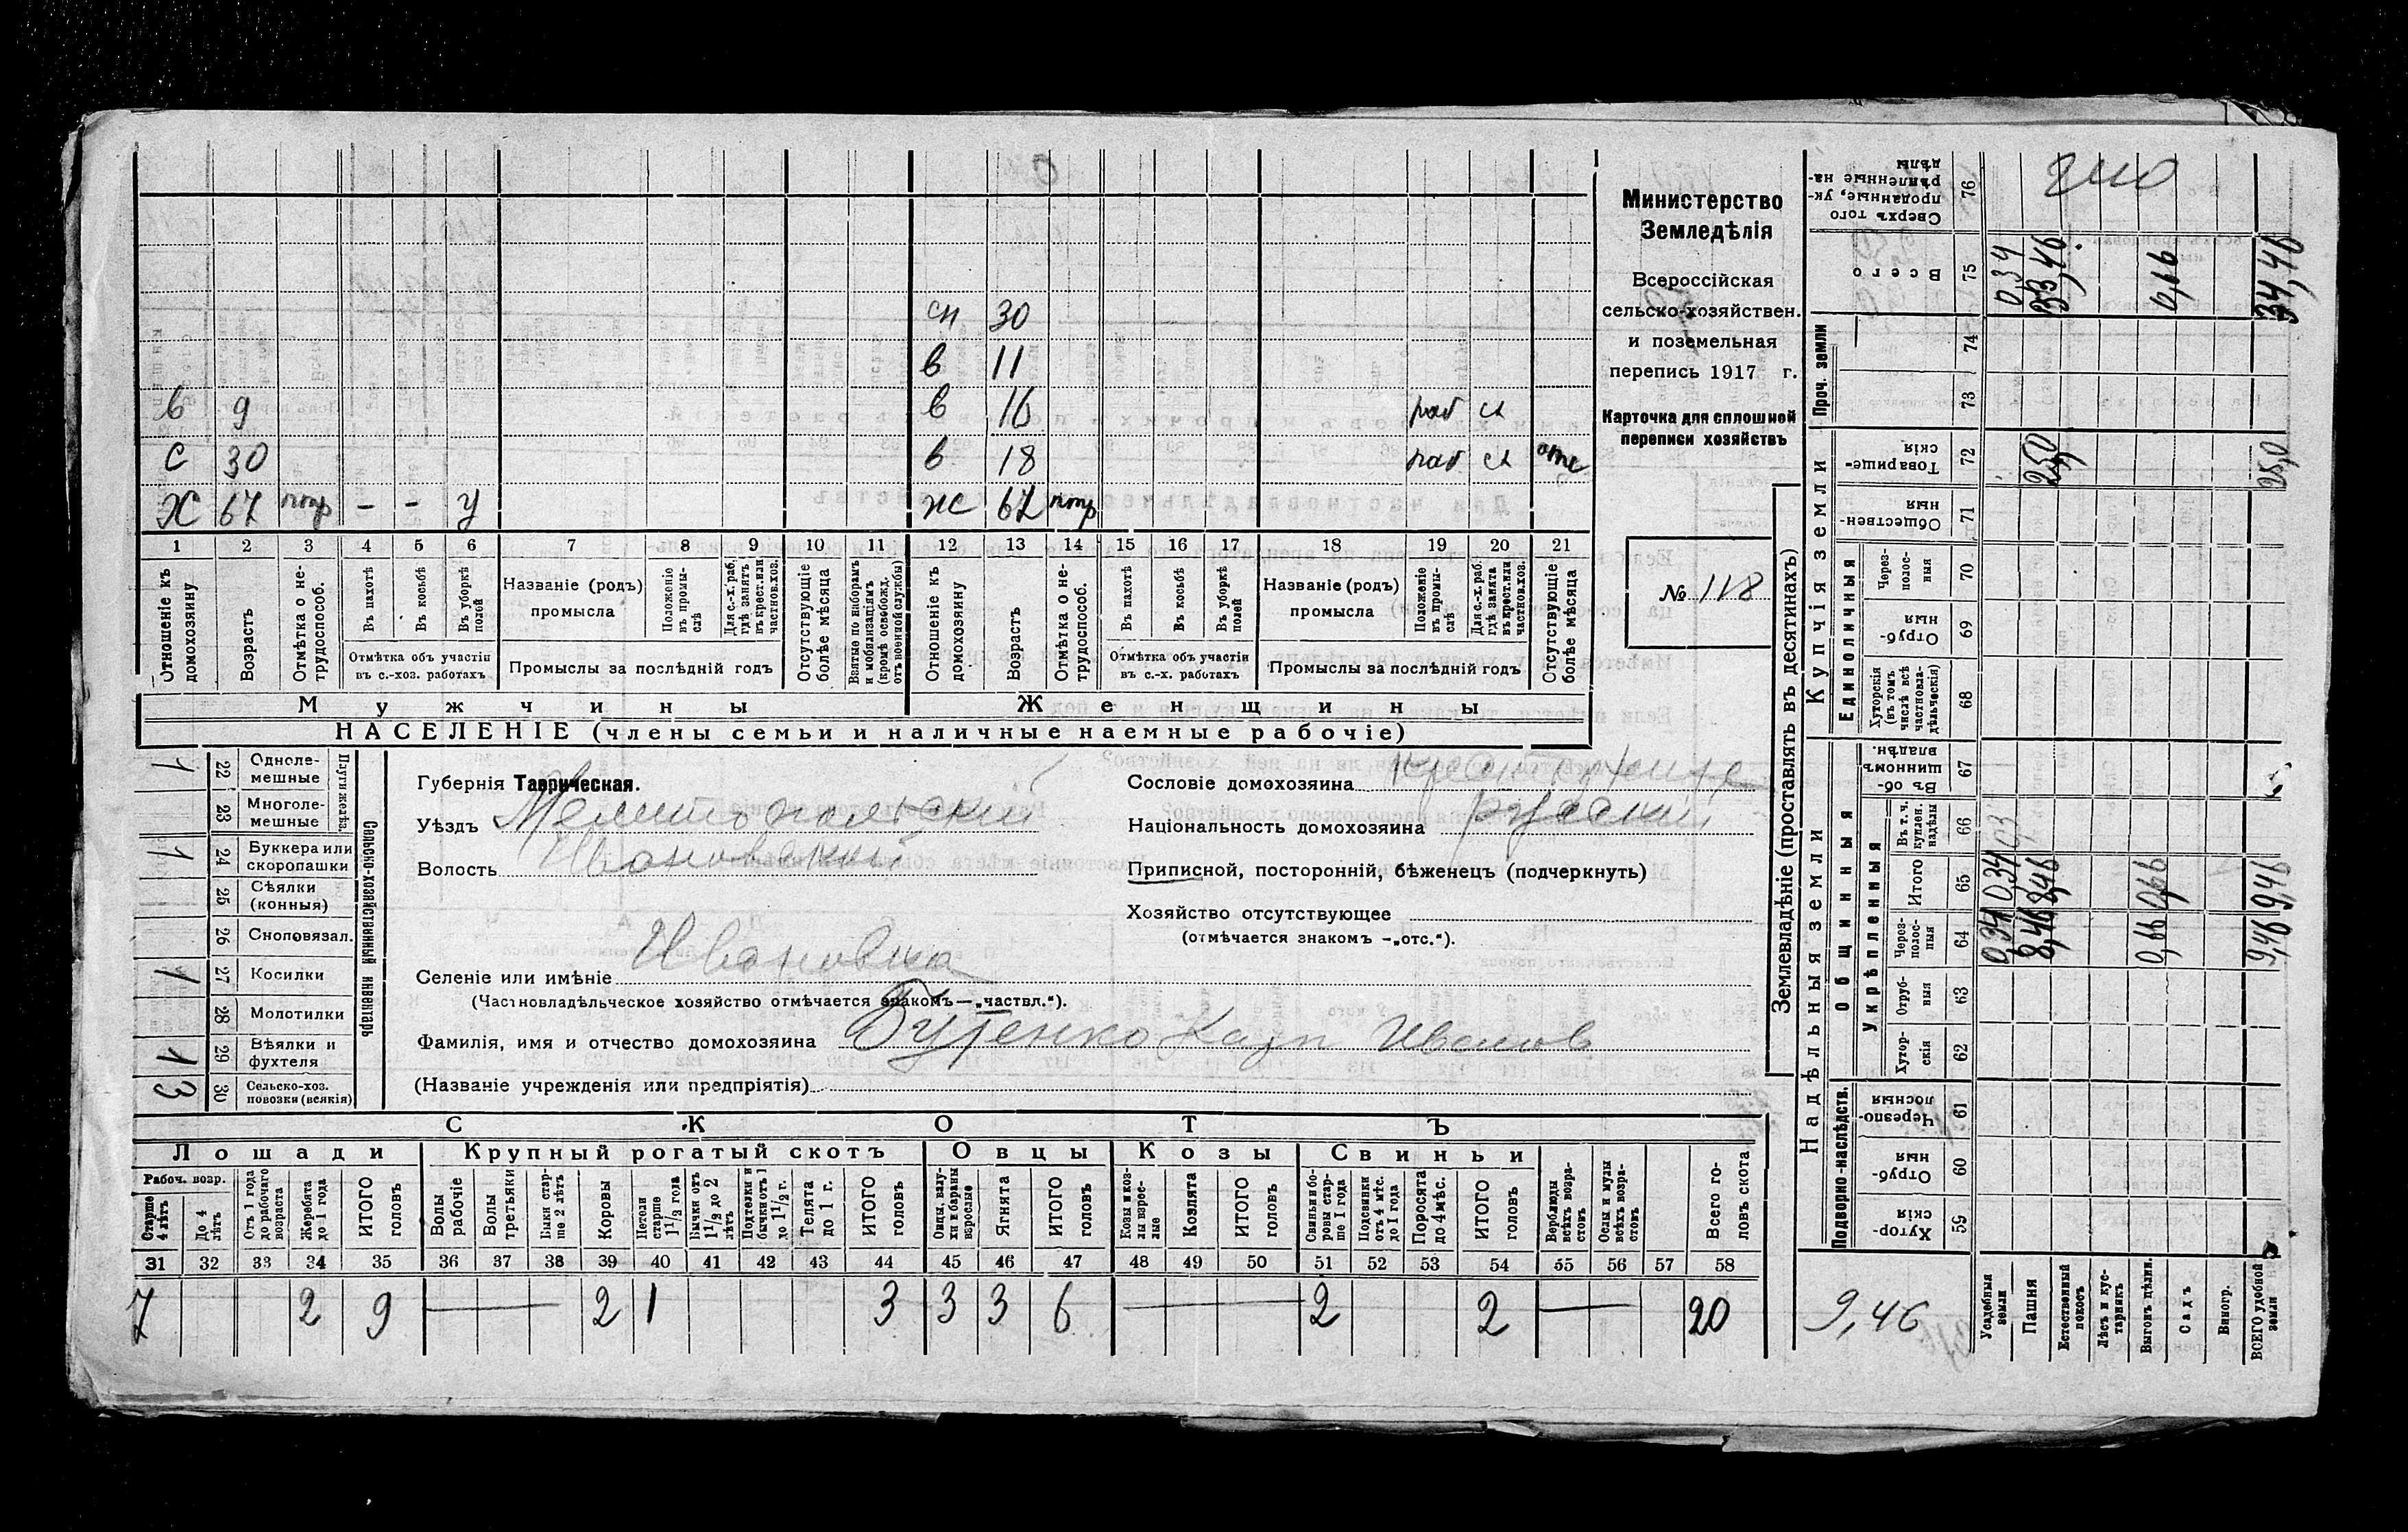 сн 30
в 11
в 9 в 16 раб
С 30 в 18 раб отс
Х 67 - - У Ж 67
1 2 3 4 5 6 7 8 9 10 11 12 13 14 15 16 17 18 19 20 21
Отношеніе къ домохозяину
Возрастъ
Отмѣтка о не-
трудоспособ.
Въ пахотѣ
Въ косьбѣ
Въ уборкѣ
полей
Отмѣтка объ участіи
въ с.-хоз. работахъ
Названіе (родъ)
промысла
Положеніе
въ промы-
слѣ
Для с.-х. раб.
гдѣ занятъ
въ крест. или
частнов. хоз.
Промыслы за послѣдній годъ
Отсутствующіе
болѣе мѣсяца
Взятые по наборамъ
и мобилизаціямъ
(кромѣ освобожд.
отъ военной службы)
Отношеніе къ
домохозяину
Возрастъ
Отмѣтка о не-
трудоспособ.
Въ пахотѣ
Въ косьбѣ
Въ уборкѣ
полей
Отмѣтка объ участіи
въ с.-х. работахъ
Названіе (родъ)
промысла
Положеніе
въ промы-
слѣ
Для с.-х. раб.
гдѣ занята
въ крест. или
частнов. хоз.
Промыслы за послѣдній годъ
Отсутствующіе
болѣе мѣсяца
Мужчины Женщины
НАСЕЛЕНІЕ (члены семьи и наличные наемные рабочіе)
Министерство
Земледѣлія
Всероссійская
сельско-хозяйствен.
и поземельная
перепись 1917 г.
Карточка для сплошной
переписи хозяйствъ
№ 118
Сельско-хозяйственный инвентарь
Плуги желѣз.
1 22 Одноле-
мешные
23 Многоле-
мешные
1 24 Буккера или
скоропашки
25 Сѣялки
(конныя)
26 Сноповязал.
1 27 Косилки
28 Молотилки
1 29 Вѣялки и
фухтеля
3 30 Сельско-хоз.
повозки (всякія)
Губернія Таврическая.
Уѣздъ Мелитопольскій
Волость Ивановской
Селеніе или имѣніе Ивановка
(Частновладѣльческое хозяйство отмѣчается знакомъ—„частвл.“).
Фамилія, имя и отчество домохозяина Гутенко Карп Иванов
(Названіе учрежденія или предпріятія)
Сословіе домохозяина
Національность домохозяина русский
Приписной, посторонній, бѣженецъ (подчеркнуть)
Хозяйство отсутствующее
(отмѣчается знакомъ —„отс.“).
СКОТЪ
Лошади Крупный рогатый скотъ Овцы Козы Свиньи
Рабоч. возр.
Старше
4 лѣтъ
До 4
лѣтъ
Отъ 1 года
до рабочаго
возраста
Жеребята
до 1 года
ИТОГО
головъ
Волы
рабочіе
Волы
третьяки
Быки стар-
ше 2 лѣтъ
Коровы
Нетели
старше
1 1/2 года
Бычки отъ
1 1/2 до 2
лѣтъ
Подтелки и
бычки отъ 1
до 1 1/2 г.
Телята
до 1 г.
ИТОГО
головъ
Овцы, валу-
хи и бараны
взрослые
Ягнята
ИТОГО
головъ
Козы и коз-
лы взрос-
лые
Козлята
ИТОГО
головъ
Свиньи и бо-
ровы стар-
ше 1 года
Подсвинки
отъ 4 мѣс.
до 1 года
Поросята
до 4 мѣс.
ИТОГО
головъ
Верблюды
всѣхъ возра-
стовъ
Ослы и мулы
всѣхъ возра-
стовъ
Всего го-
ловъ скота
31 32 33 34 35 36 37 38 39 40 41 42 43 44 45 46 47 48 49 50 51 52 53 54 55 56 57 58
7 2 9 — 2 1 3 3 3 6 — 2 2 — 20
Землевладѣніе (проставлять въ десятинахъ)
Надѣльныя земли Купчія земли Проч. земли
Подворно-наслѣдств. Общинныя Единоличныя
Укрѣпленныя
Сверхъ того
проданные, ук-
рѣпленные на-
дѣлы
76
Всего 75 0,34 33,46 0,66 34,46
74
73
Товарище-
скія
72 25,0 25,0
Обществен-
ныя
71
Через-
полос-
ныя
70
Отруб-
ныя
69
Хуторскія
(въ томъ
числѣ всѣ
частновла-
дѣльческія)
68
Въ об-
щинномъ
владѣн.
67
Въ т. ч.
куплен.
надѣлы
66
Итого 65 0,34 8,46 0,66 9,46
Черезполос-
ныя
64 0,34 8,46 0,66 9,46
Отруб-
ныя
63
Хутор-
скія
62
Черезпо-
лосныя
61
Отруб-
ныя
60
Хутор-
скія
59
9,46
Усадебныя
земли
Пашня
Естественный
покосъ
Лѣсъ и кус-
тарникъ
Выгонъ цѣлин.
Садъ
Виногр.
ВСЕГО удобной
земли